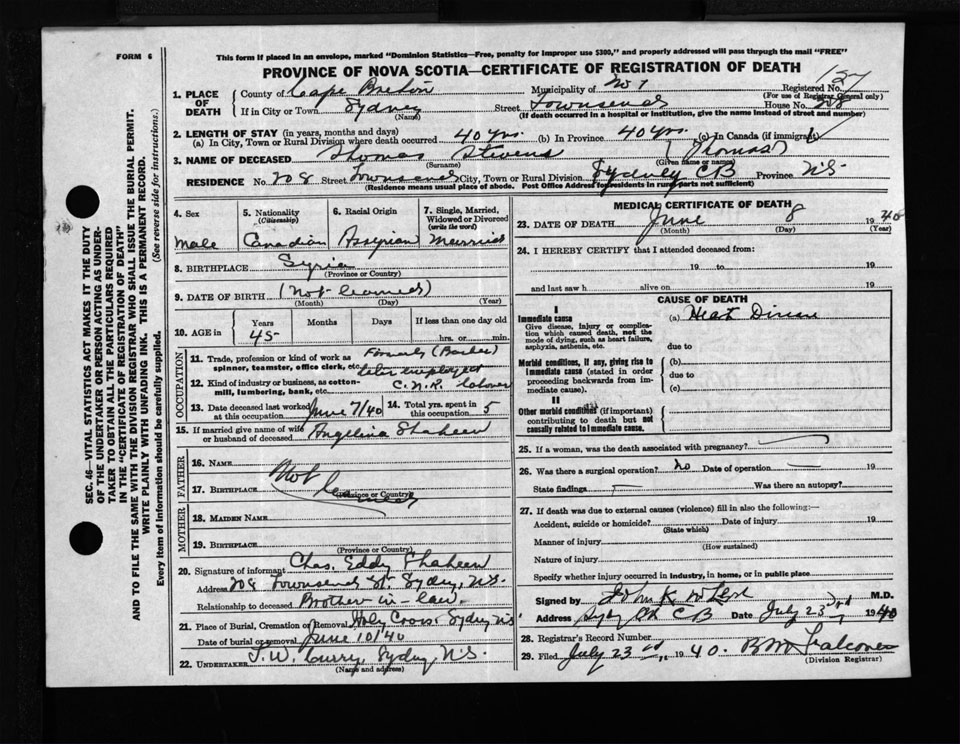 FORM 6
This form if placed in an envelope, marked "Dominion Statistics—Free, penalty for improper use $300," and properly addressed will pass through the mail "FREE"
PROVINCE OF NOVA SCOTIA—CERTIFICATE OF REGISTRATION OF DEATH
1. PLACE OF DEATH
County of Cape Breton Municipality of No 7 Registered No. 127
(For use of Registrar General only)
If in City or Town Sydney Street Townsend House No. 208
(Name) (If death occurred in a hospital or institution, give the name instead of street and number)
2. LENGTH OF STAY (in years, months and days)
(a) In City, Town or Rural Division where death occurred 40 yrs. (b) In Province 40 yrs. (c) In Canada (if immigrant)
3. NAME OF DECEASED Thomas Stevens (Thomas)
(Surname) (Given name or names)
RESIDENCE No. 208 Street Townsend City, Town or Rural Division Sydney CB Province N.S.
(Residence means usual place of abode. Post Office Address for residents in rural parts not sufficient)
4. Sex
Male
5. Nationality
(Citizenship)
Canadian
6. Racial Origin
Assyrian
7. Single, Married, Widowed or Divorced
(write the word)
Married
8. BIRTHPLACE Syria
(Province or Country)
9. DATE OF BIRTH (Not learned)
(Month) (Day) (Year)
10. AGE in
Years Months Days If less than one day old
45 hrs. or min.
OCCUPATION
11. Trade, profession or kind of work as spinner, teamster, office clerk, etc. Formerly (Barber) later employed
12. Kind of industry or business, as cotton-mill, lumbering, bank, etc. C.N.R. labourer
13. Date deceased last worked at this occupation June 7/40
14. Total yrs. spent in this occupation 5
15. If married give name of wife or husband of deceased Angelina Shaheen
FATHER
16. NAME
17. BIRTHPLACE
(Province or Country)
Not learned
MOTHER
18. MAIDEN NAME
19. BIRTHPLACE
(Province or Country)
20. Signature of informant Chas. Eddy Shaheen
Address 208 Townsend St. Sydney, N.S.
Relationship to deceased Brother-in-law.
21. Place of Burial, Cremation or Removal Holy Cross Sydney NS
Date of burial or removal June 10/40
22. UNDERTAKER T.W. Curry, Sydney N.S.
(Name and address)
MEDICAL CERTIFICATE OF DEATH
23. DATE OF DEATH June 8 1940
(Month) (Day) (Year)
24. I HEREBY CERTIFY that I attended deceased from:
19 to 19
and last saw h alive on 19
CAUSE OF DEATH
I
Immediate cause
Give disease, injury or complication which caused death, not the mode of dying, such as heart failure, asphyxia, asthenia, etc.
(a) Heart Disease
due to
Morbid conditions, if any, giving rise to immediate cause (stated in order proceeding backwards from immediate cause).
(b)
due to
(c)
II
Other morbid conditions (if important) contributing to death but not causally related to immediate cause.
25. If a woman, was the death associated with pregnancy?
26. Was there a surgical operation? no Date of operation — 19
State findings — Was there an autopsy?
27. If death was due to external causes (violence) fill in also the following:—
Accident, suicide or homicide? Date of injury 19
(State which)
Manner of injury
(How sustained)
Nature of injury
Specify whether injury occurred in industry, in home, or in public place
Signed by John K. M.D.
Address CB Date July 23rd 1940
28. Registrar's Record Number
29. Filed July 23rd, 1940. B M Falconer
(Division Registrar)
SEC. 46—VITAL STATISTICS ACT MAKES IT THE DUTY OF THE UNDERTAKER OR PERSON ACTING AS UNDERTAKER TO OBTAIN ALL THE PARTICULARS REQUIRED IN THE "CERTIFICATE OF REGISTRATION OF DEATH" AND TO FILE THE SAME WITH THE DIVISION REGISTRAR WHO SHALL ISSUE THE BURIAL PERMIT.
WRITE PLAINLY WITH UNFADING INK. THIS IS A PERMANENT RECORD.
Every item of information should be carefully supplied. (See reverse side for instructions.)